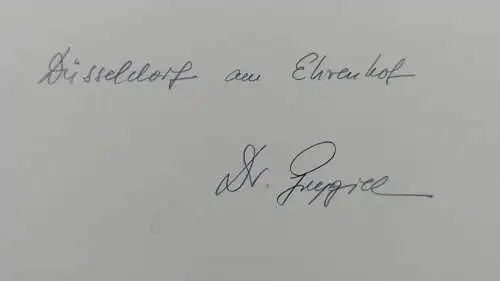 Düsseldorf am Ehrenhof
Dr.